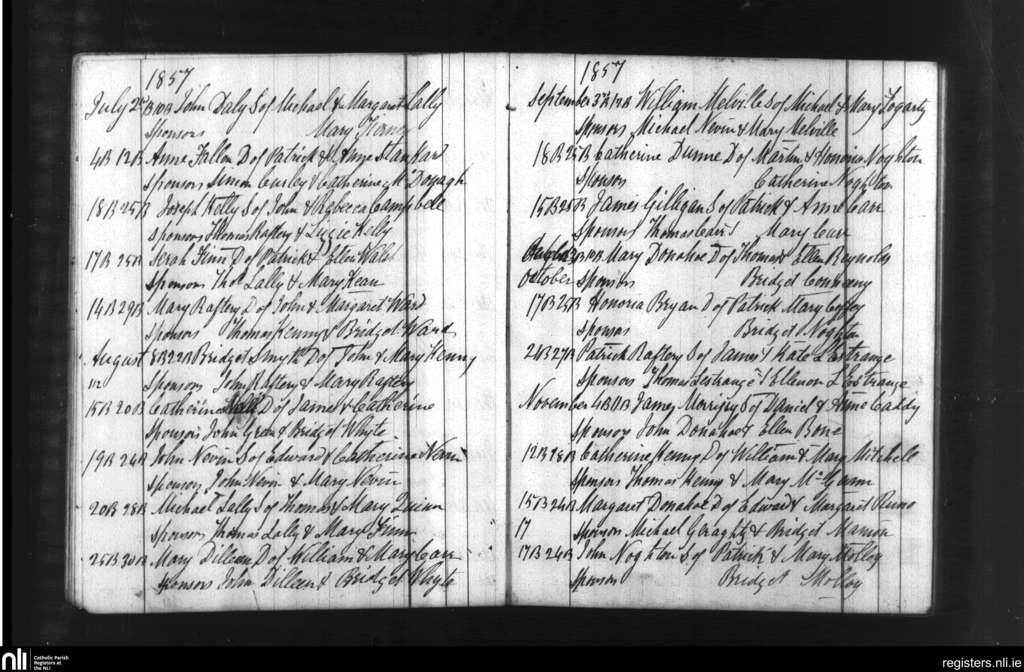 1857
July 2d B 10B John Daly S of Michael & Margaret Lally
Sponsors Mary Tierney
4B 12B Anne Fallon D of Patrick & Anne
Sponsors Simon Curley & Catherine Mc Donagh
18B 25B Joseph Kelly S of John & Rebecca Campbell
Sponsors Thomas Raftery & Kelly
17B 25B Serah Finn D of Patrick & Ellen Walsh
Sponsors Thos Lally & Mary Kean
14B 29B Mary Raftery D of John & Margaret Ward
Sponsors Thomas Kenny & Bridget Ward
August 8B 22B Bridget Smyth D of John & Mary Kenny
112 Sponsors John Raftery & Mary Raftery
15B 20B Catherine D of James & Catherine
Sponsors John Green & Bridget Whyte
19B 24B John Nevin S of Edward & Catherine
Sponsors John Nevin & Mary Nevin
20B 28B Michael Lally S of Thomas & Mary Quinn
Sponsors Thomas Lally & Mary Finn
25B 30B Mary Dillean D of William & Mary Carr
Sponsors John Dillean & Bridget Whyte
1857
September 3B 12B William Melville S of Michael & Mary Fogarty
Sponsors Michael Nevin & Mary Melville
18B 25B Catherine Dunne D of Martin & Honoria Noghton
Sponsors Catherine Noghton
15B 25B James Gilligan S of Patrick & Anne Carr
Sponsors Thomas Carr & Mary Carr
Mary Donahoe D of Thomas & Ellen Reynolds
October Sponsors Bridget
17B 25B Honoria Bryan D of Patrick Mary Coffey
Sponsors Bridget Noghton
24B 27B Patrick Raftery S of James & Kate Lestrange
Sponsors Thomas Lestrange & Ellenor L Estrange
November 4B 11B James S of Daniel & Anne Caddy
Sponsors John Donahoe & Ellen Bone
12B 18B Catherine Kenny D of William & Mary Mitchell
Sponsors Thomas Kenny & Mary
15B 24B Margaret Donahoe D of Edward & Margaret
17 Sponsors Michael Geraghty & Bridget Mannon
17B 24B John Noghton S of Patrick & Mary Molloy
Sponsors Bridget Molloy
nli Catholic Parish
Registers at
the NLI
registers.nli.ie